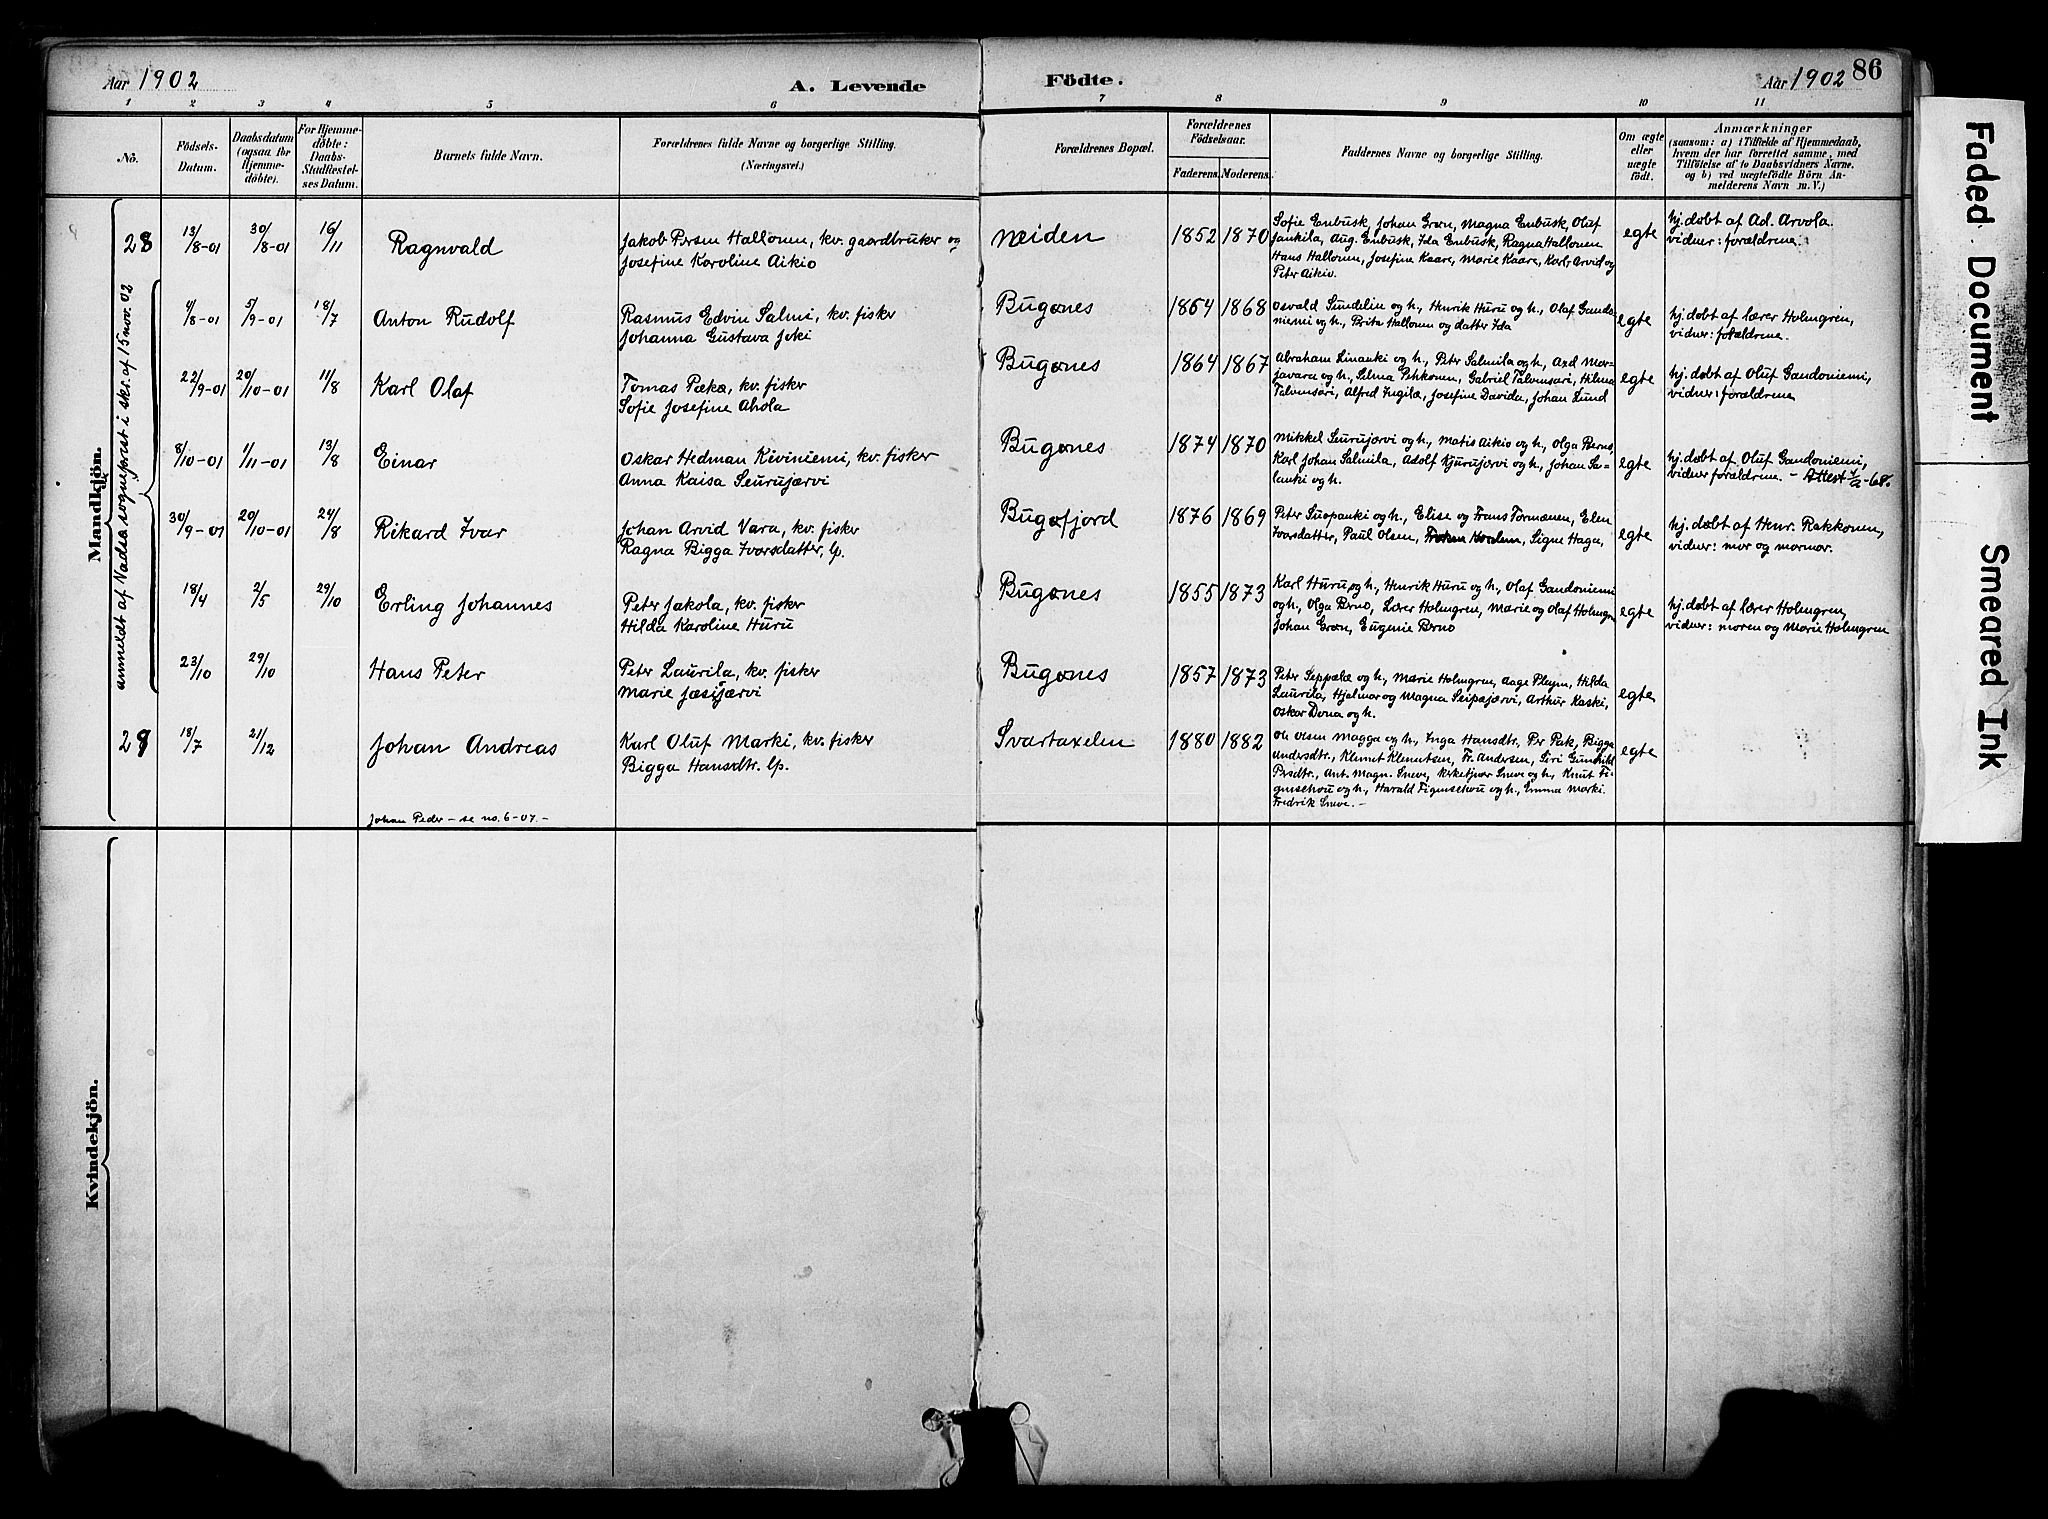 Aar 1902
A. Levende
Födte.
Aar 1902
86
1 2 3 4 5 6 7 8 9 10 11
No.
Födsels-
Datum.
Daabsdatum
(ogsaa for
Hjemme-
döbte).
For Hjemme-
döbte:
Daabs-
Stadfæstel-
ses Datum.
Barnets fulde Navn.
Forældrenes fulde Navne og borgerlige Stilling.
(Næringsvei.)
Forældrenes Bopæl.
Forældrenes
Födselsaar.
Faderens.
Moderens.
Faddernes Navne og borgerlige Stilling.
Om ægte
eller
uægte
födt.
Anmærkninger
(saasom: a) i Tilfælde af Hjemmedaab,
hvem der har forrettet samme, med
Tilföielse af to Daabsvidners Navne,
og b) ved uægtefödte Börn An-
melderens Navn m. V.)
Mandkjön.
anmeldt af Vadsø sogneprest i skr. af 15 nov. 02
28
13/8-01
30/8-01
16/11
Ragnvald
Jakob Persen Hallonen, kv. gaardbruker og
Josefine Karoline Aikio
Neiden
1852
1870
Sofie Enbusk, Johan Grøn, Magna Enbusk, Oluf
Jankila, Aug. Enbusk, Ida Enbusk, Ragna Hallonen
Hans Hallonen, Josefine Kaare, Marie Kaare, Karl Arvid og
Peter Aikio.
egte
hj. døbt af Ad. Arvola.
vidner: forældrene.
4/8-01
5/9-01
18/7
Anton Rudolf
Rasmus Edvin Salmi, kv. fisker
Johanna Gustava Joki
Bugønes
1864
1868
Osvald Sundelin og h., Henrik Huru og h., Olaf Gando-
niemi og h., Brita Hallonen og datter Ida
egte
hj. døbt af lærer Holmgren,
vidner: forældrene.
22/9-01
20/10-01
11/8
Karl Olaf
Tomas Pækø, kv. fisker
Sofie Josefine Ahola
Bugønes
1864
1867
Abraham Linanki og h., Peter Salmila og h., Axel Mar-
javara og h., Selma Pehkonen, Gabriel Talvensari, Hilma
Talvensari, Alfred Ingilæ, Josefine Davida, Johan Lund
egte
hj. døbt af Oluf Gandoniemi,
vidner: forældrene
8/10-01
1/11-01
13/8
Einar
Oskar Hedman Kiviniemi, kv. fisker
Anna Kaisa Seurujærvi
Bugønes
1874
1870
Mikkel Seurujærvi og h., Matis Aikio og h., Olga Berno,
Karl Johan Salmila, Adolf Kjurujærvi og h., Johan Sa-
lanki og h.
egte
hj. døbt af Oluf Gandoniemi,
vidner forældrene. – Attest
30/9-01
20/10-01
24/8
Rikard Ivar
Johan Arvid Vara, kv. fisker
Ragna Bigga Ivarsdatter, lp.
Bugøfjord
1876
1869
Peter Suopanki og h., Elise og Frans Tormænen, Elen
Ivarsdatter, Paul Olsen, Signe Haga,
egte
hj. døbt af Henr. Rakkonen,
vidner: mor og mormor.
18/4
2/5
29/10
Erling Johannes
Peter Jakola, kv. fisker
Hilda Karoline Huru
Bugønes
1855
1873
Karl Huru og h., Henrik Huru og h., Olaf Gandoniemi
og h., Olga Berno, Lærer Holmgren, Marie og Olaf Holmgren
Johan Grøn, Eugenie Berno
egte
hj. døbt af lærer Holmgren,
vidner: moren og Marie Holmgren
23/10
29/10
Hans Peter
Peter Laurila, kv. fisker
Marie Jæsijærvi
Bugønes
1857
1873
Peter Seppælæ og h., Marie Holmgren, Aage Pleym, Hilda
Laurila, Hjalmar og Magna Seipajærvi, Arthur Kaski,
Oskar Dona og h.
egte
28
18/7
21/12
Johan Andreas
Karl Oluf Marki, kv. fisker
Bigga Hansdtr. lp.
Svartaxelen
1880
1882
Ole Olsen Magga og h., Inga Hansdtr, Per Pak, Bigga
Andersdtr., Klemet Klemetsen, Fr. Andersen, Siri Gunhild
Persdtr., Ant. Magn. Sneve, kirketjener Sneve og h., Knut Fi-
genschou og h., Harald Figenschou og h., Emma Marki.
Fredrik Sneve. –
egte
Johan Peder – se no. 6-07. –
Kvindekjön.
Faded Document
Smeared Ink